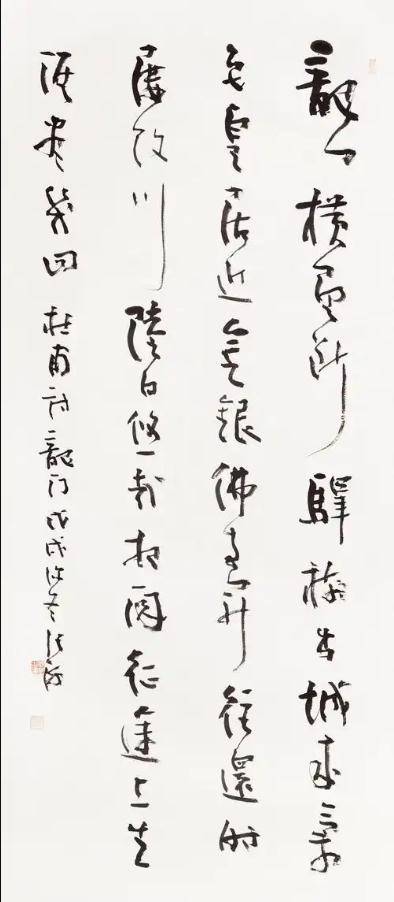 龍門橫野斷驛樹出城來氣
色皇居近金銀佛寺開往還時
屢改川陸日悠哉相閱征途上生
涯盡幾回 杜甫詩龍門戊戌冬